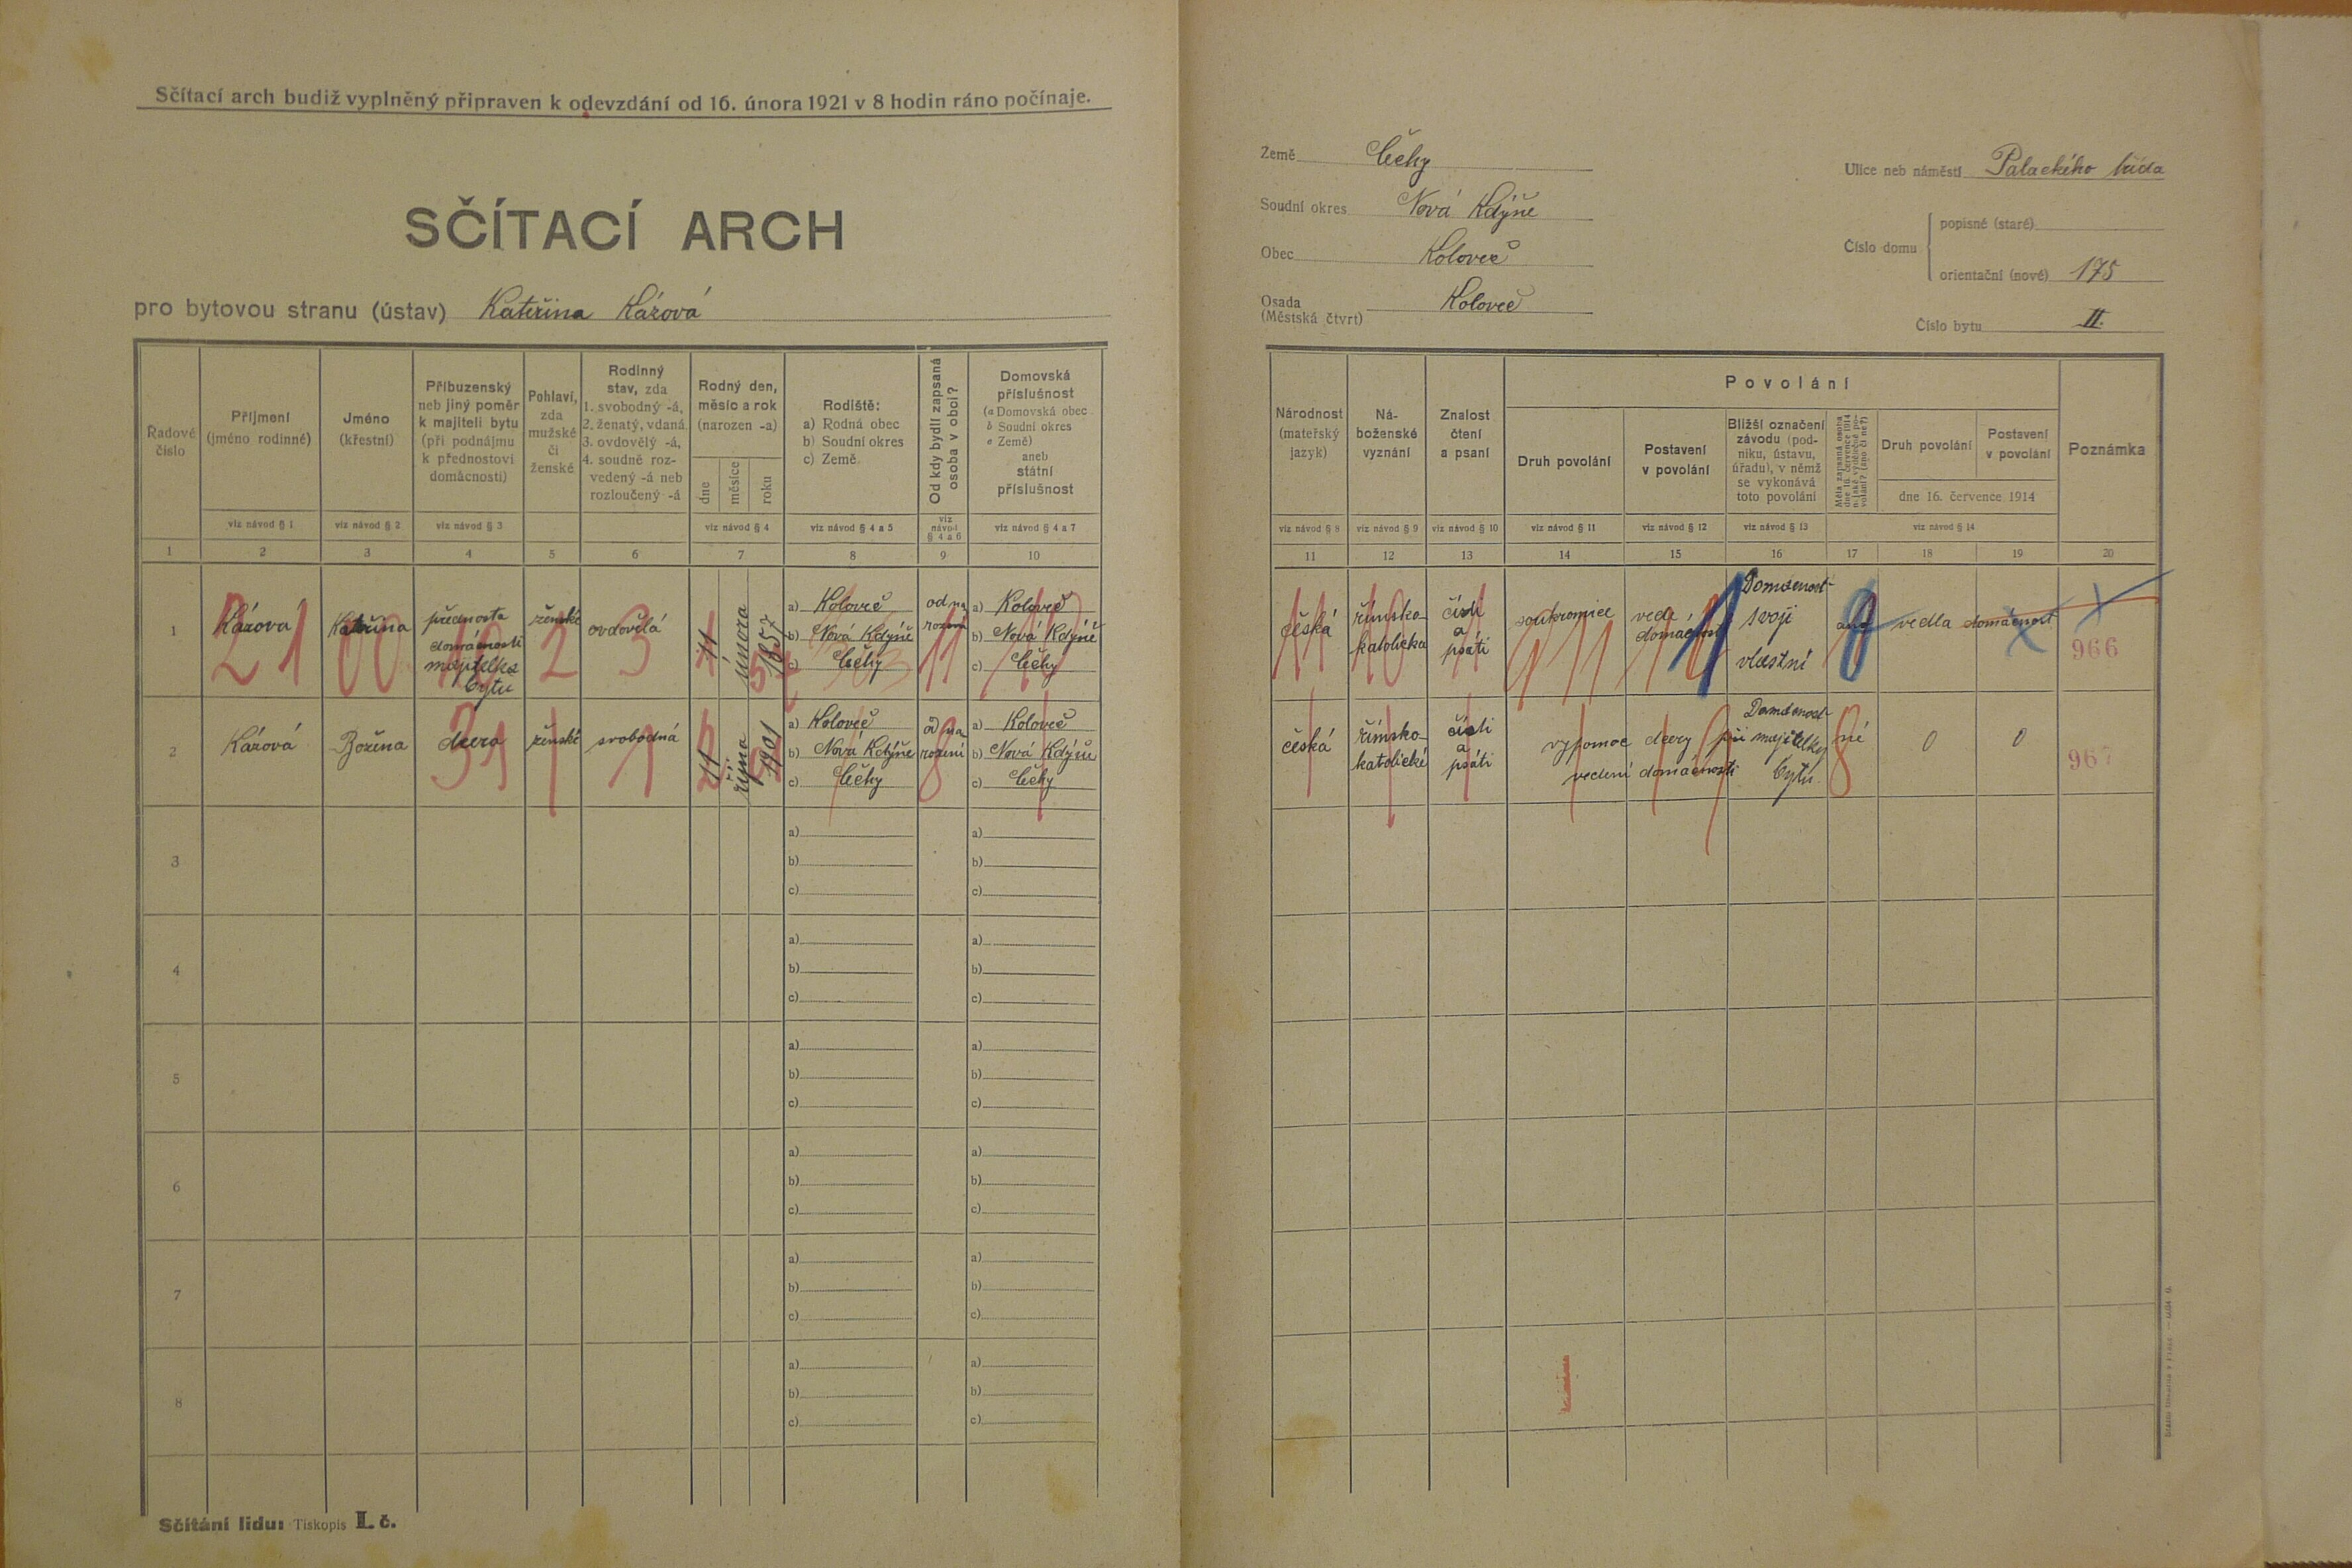 Sčítací arch budiž vyplněný připraven k odevzdání od 16. února 1921 v 8 hodin ráno počínaje.
SČÍTACÍ ARCH
pro bytovou stranu (ústav) Kateřina Kázová
Řadové číslo
Příjmení (jméno rodinné)
viz návod § 1
Jméno (křestní)
viz návod § 2
Příbuzenský neb jiný poměr k majiteli bytu (při podnájmu k přednostovi domácnosti)
viz návod § 3
Pohlaví, zda mužské či ženské
Rodinný stav, zda
1. svobodný -á,
2. ženatý, vdaná
3. ovdovělý -á,
4. soudně roz-
vedený -á neb
rozloučený -á
Rodný den, měsíc a rok (narozen -a)
dne měsíce roku
viz návod § 4
Rodiště:
a) Rodná obec
b) Soudní okres
c) Země
viz návod § 4 a 5
Od kdy bydlí zapsaná osoba v obci?
viz návod § 4 a 6
Domovská příslušnost
(a Domovská obec
b Soudní okres
c Země)
aneb
státní
příslušnost
viz návod § 4 a 7
1 2 3 4 5 6 7 8 9 10
1 Kázová Kateřina přednosta domácnosti majitelka bytu ženské ovdovělá 11 února 1857
a) Koloveč
b) Nová Kdýně
c) Čechy
od narození
a) Koloveč
b) Nová Kdýně
c) Čechy
21 00 2 3 11
2 Kázová Božena dcera ženské svobodná 11 října 1901
a) Koloveč
b) Nová Kdýně
c) Čechy
od narození
a) Koloveč
b) Nová Kdýně
c) Čechy
31 1
3
a)
b)
c)
a)
b)
c)
4
a)
b)
c)
a)
b)
c)
5
a)
b)
c)
a)
b)
c)
6
a)
b)
c)
a)
b)
c)
7
a)
b)
c)
a)
b)
c)
8
a)
b)
c)
a)
b)
c)
Sčítání lidu: Tiskopis I. č.
Země Čechy
Soudní okres Nová Kdýně
Obec Koloveč
Osada (Městská čtvrt) Koloveč
Ulice neb náměstí Palackého třída
Číslo domu
popisné (staré)
orientační (nové) 175
Číslo bytu II.
Národnost (mateřský jazyk)
viz návod § 8
Ná-
boženské
vyznání
viz návod § 9
Znalost čtení a psaní
viz návod § 10
Povolání
Druh povolání
viz návod § 11
Postavení v povolání
viz návod § 12
Bližší označení
závodu (pod-
niku, ústavu,
úřadu), v němž
se vykonává
toto povolání
viz návod § 13
Měla zapsaná osoba dne 16. července 1914 nějaké výdělečné povolání? (ano či ne?)
Druh povolání
Postavení v povolání
dne 16. července 1914
viz návod § 14
Poznámka
11 12 13 14 15 16 17 18 19 20
česká římsko-katolická čísti a psáti soukromice vede domácnost Domácnost svoji vlastní ano vedla domácnost
966
česká římsko-katolické čísti a psáti výpomoc dcery při vedení domácnosti Domácnost majitelky bytu né 0 0
967